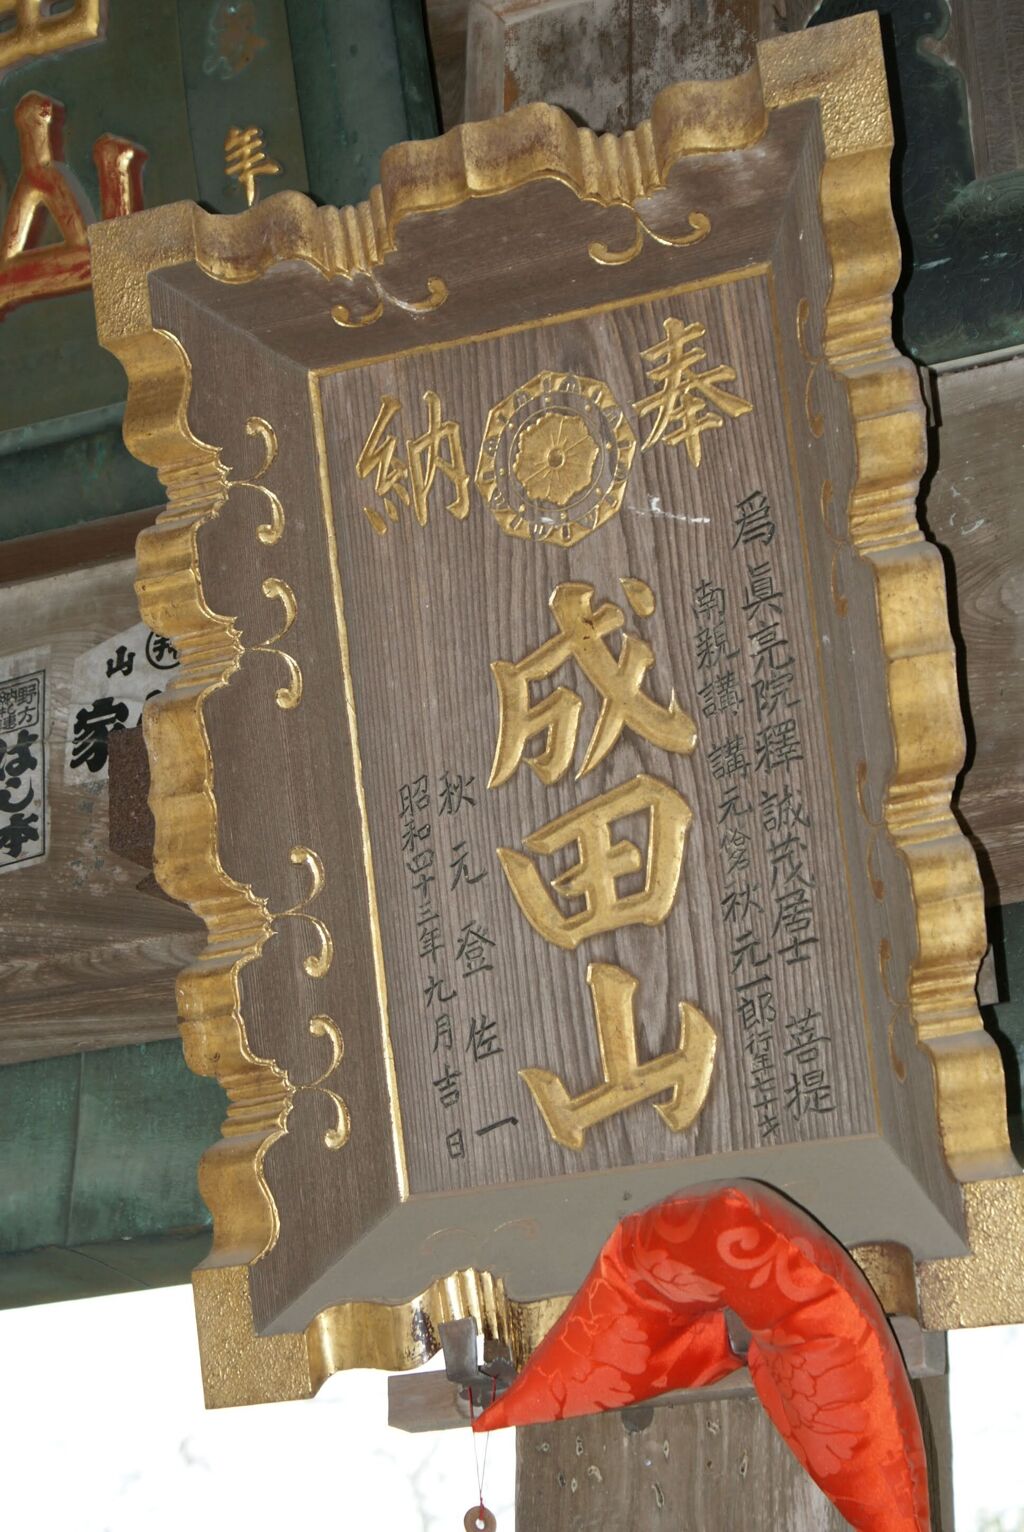 奉納
為 眞亮院釋誠茂居士 菩提
南親講 講元 秋元一郎 行年七十才
成田山
秋元登佐一
昭和四十三年九月吉日
年
山
家
野方
はし本